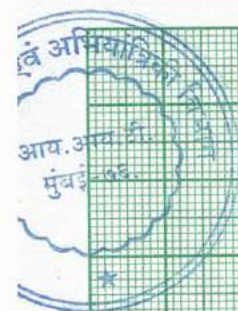 एवं अभियांत्रिकी विभाग
आय.आय.टी.
मुंबई-७६.